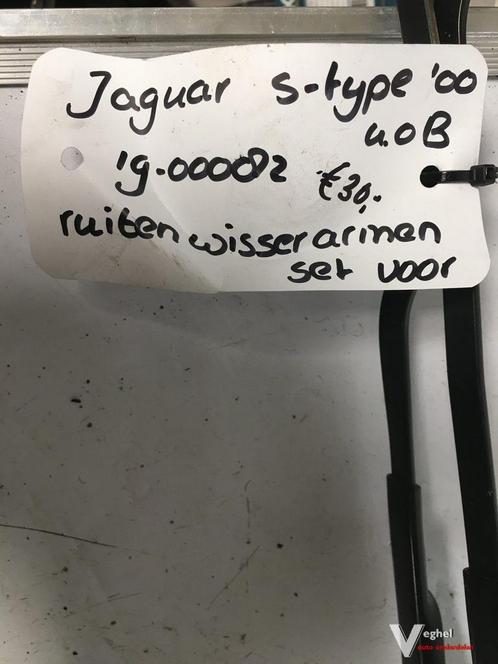 Jaguar s-type '00
4.0B
19.000082 €30,-
ruitenwisserarmen
set voor
Veghel
auto onderdelen